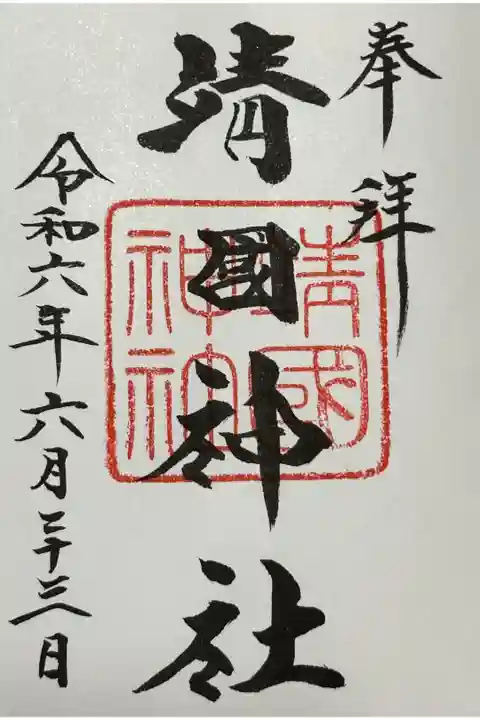 奉拝
靖國神社
令和六年六月二十三日